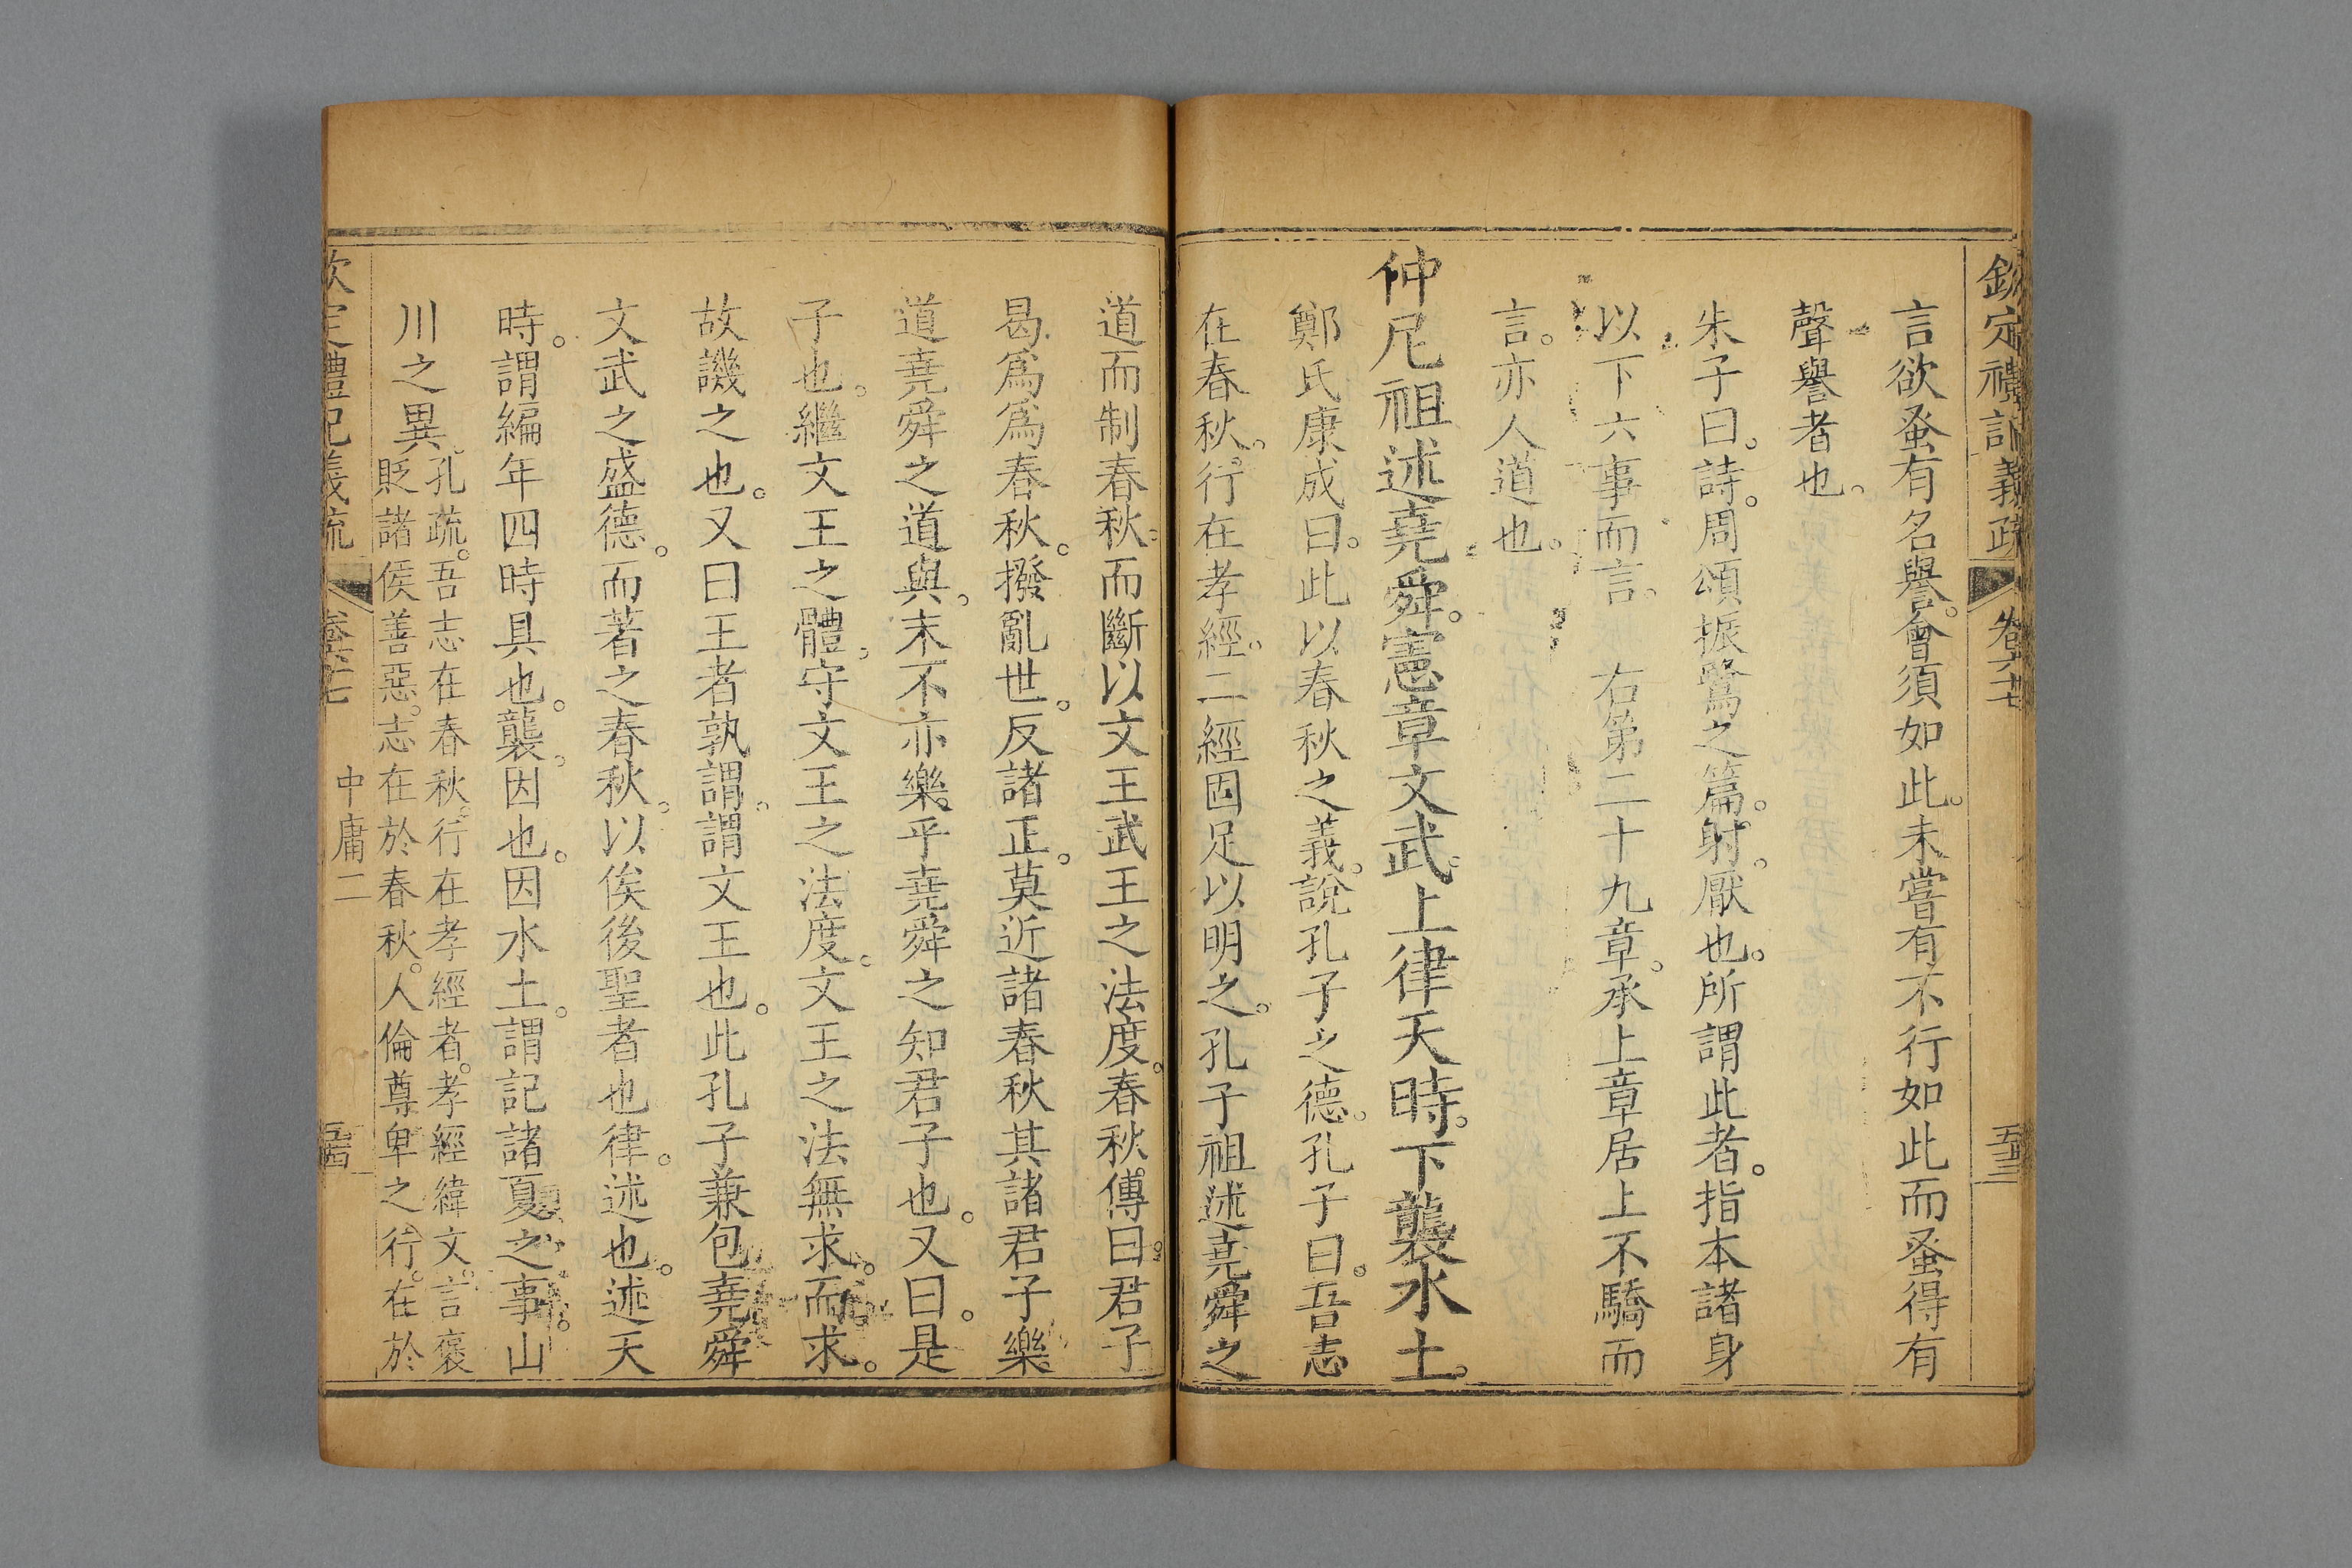 欽定禮記義疏 卷六十七 五十三
言欲蚤有名譽。會須如此。未嘗有不行如此而蚤得有
聲譽者也。
朱子曰。詩。周頌振鷺之篇。射。厭也。所謂此者。指本諸身
以下六事而言。 右第二十九章。承上章居上不驕而
言。亦人道也。
仲尼祖述堯舜。憲章文武。上律天時。下襲水土。
鄭氏康成曰。此以春秋之義。說孔子之德。孔子曰。吾志
在春秋。行在孝經。二經固足以明之。孔子祖述堯舜之
道而制春秋。而斷以文王武王之法度。春秋傳曰。君子
曷爲爲春秋。撥亂世。反諸正。莫近諸春秋其諸君子樂
道堯舜之道與。末不亦樂乎堯舜之知君子也。又曰。是
子也。繼文王之體。守文王之法度。文王之法無求。而求。
故譏之也。又曰王者孰謂。謂文王也。此孔子兼包堯舜
文武之盛德。而著之春秋。以俟後聖者也律。述也。述天
時。謂編年四時具也。襲。因也。因水土。謂記諸夏之事。山
川之異。
孔疏。吾志在春秋。行在孝經者。孝經緯文。言褒
貶諸侯善惡。志在於春秋。人倫尊卑之行。在於
欽定禮記義疏 卷六十七 中庸二 五十四